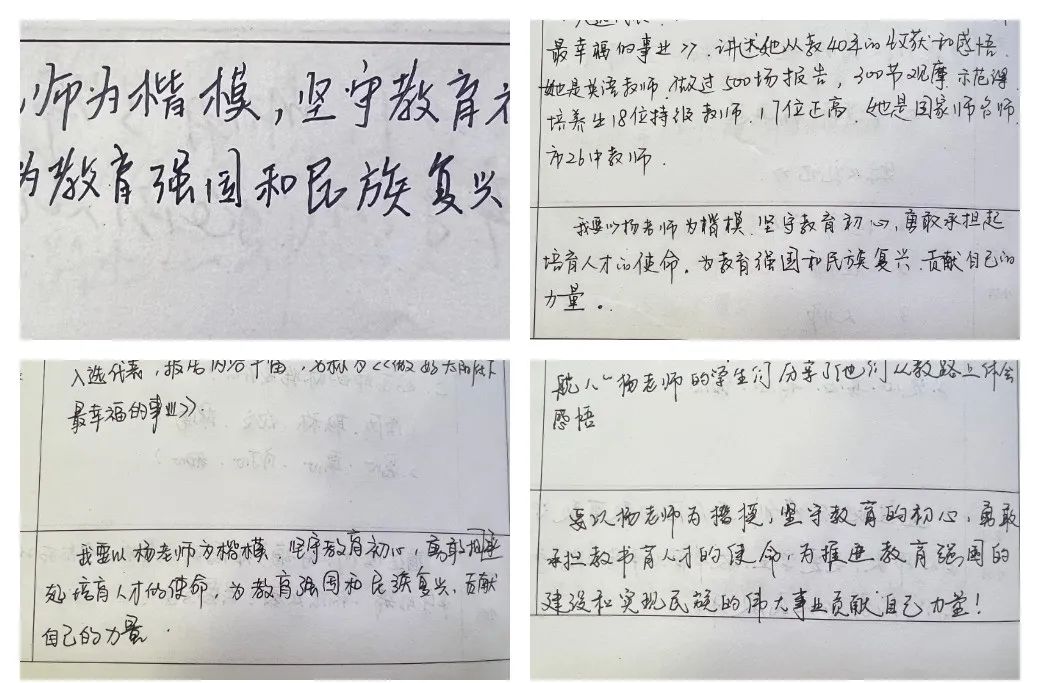 师为楷模，坚守教育初
为教育强国和民族复兴
最幸福的事业》，讲述她从教40年的收获和感悟
她是英语教师，做过500场报告，300节观摩示范课
培养生18位特级教师，17位正高，她是国家师名师
市26中教师．
我要以杨老师为楷模，坚守教育初心，勇敢承担起
培育人才的使命，为教育强国和民族复兴，贡献自己的
力量。
入选代表，报告内容丰富，名称为《做好太阳底下
最幸福的事业》．
我要以杨老师为楷模 坚守教育初心，勇敢担
起培育人才的使命，为教育强国和民族复兴，贡献
自己的力量．
航人"杨老师的学生们分享了他们从教路上体会
感悟
要以杨老师为楷模，坚守教育的初心，勇敢
承担教书育人才的使命，为推进教育强国的
建设和实现民族的伟大事业贡献自己力量！